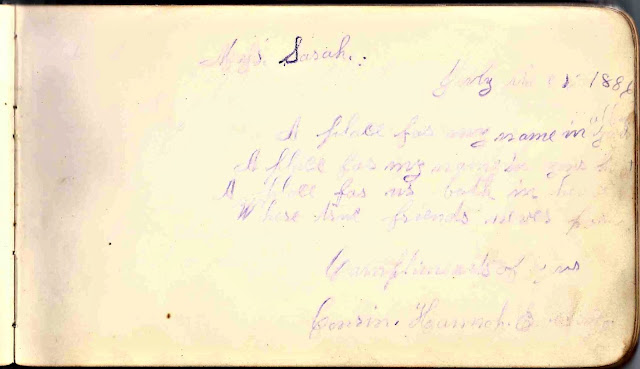 Sarah.
July 188
album
A place for my name in your
A place for my name in your
A place for us both in
Where true friends never
Compliments of your
Cousin. Hannah. E.